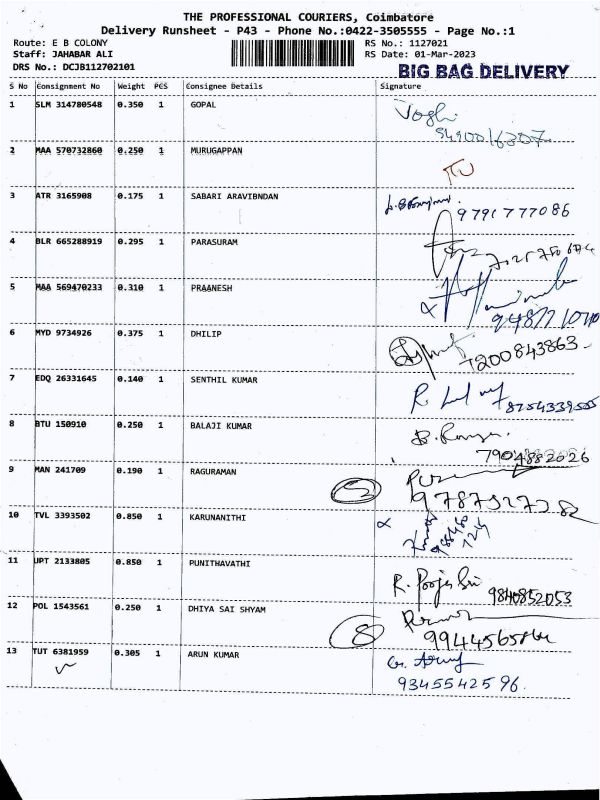 THE PROFESSIONAL COURIERS, Coimbatore
Delivery Runsheet - P43 - Phone No.:0422-3505555 - Page No.:1
Route: E B COLONY RS No.: 1127021
Staff: JAHABAR ALI RS Date: 01-Mar-2023
DRS No.: DCJB112702101
BIG BAG DELIVERY
S No Consignment No Weight PCS Consignee Details Signature
1 SLM 314780548 0.350 1 GOPAL
2 MAA 570732860 0.250 1 MURUGAPPAN
3 ATR 3165908 0.175 1 SABARI ARAVIBNDAN
9791777086
4 BLR 665288919 0.295 1 PARASURAM
5 MAA 569470233 0.310 1 PRAANESH
6 MYD 9734926 0.375 1 DHILIP
7200843863
7 EDQ 26331645 0.140 1 SENTHIL KUMAR
8754339505
8 BTU 150910 0.250 1 BALAJI KUMAR
7904882026
9 MAN 241709 0.190 1 RAGURAMAN
10 TVL 3393502 0.850 1 KARUNANITHI
11 UPT 2133805 0.850 1 PUNITHAVATHI
R. Pooja Sri 9840852053
12 POL 1543561 0.250 1 DHIYA SAI SHYAM
8
13 TUT 6381959 0.305 1 ARUN KUMAR
9345542596